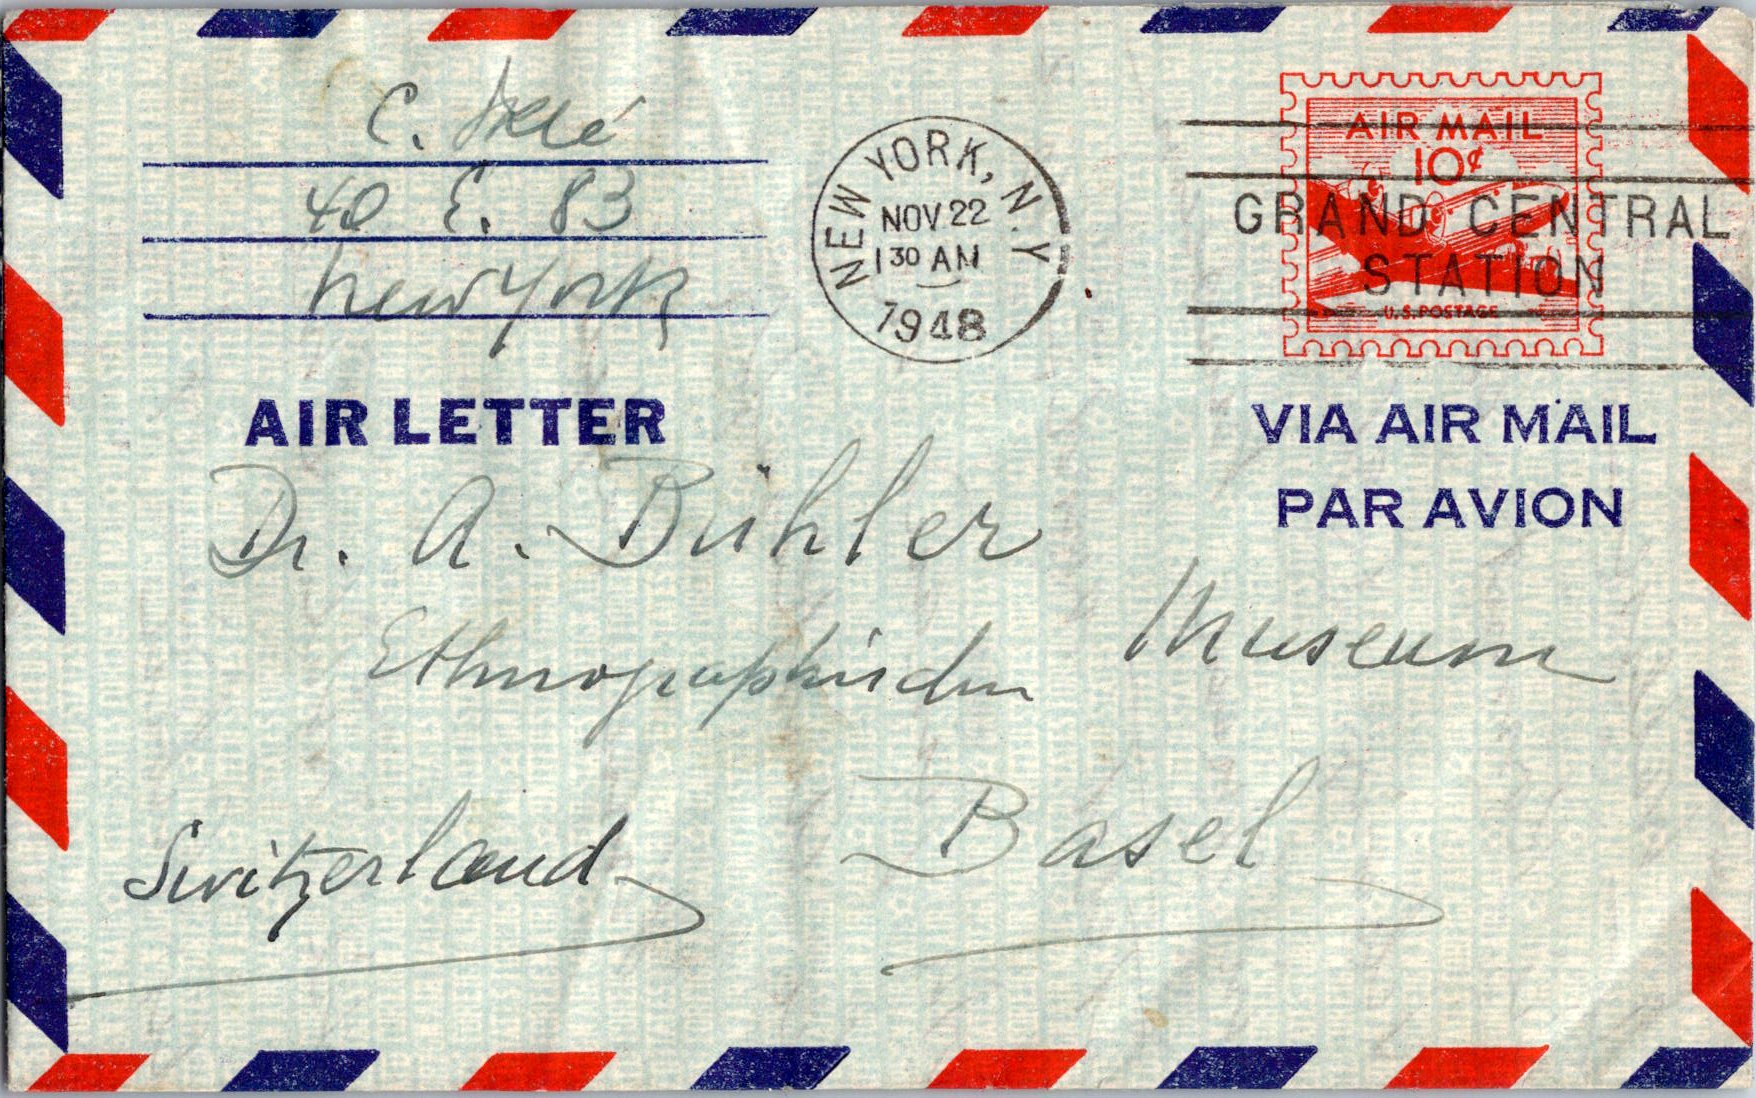 C. Iklé
40 E. 83
New York
NEW YORK, N.Y.
NOV 22
1 30 AM
1948
AIR MAIL
10¢
U.S. POSTAGE
GRAND CENTRAL
STATION
AIR LETTER
VIA AIR MAIL
PAR AVION
Dr. A. Bühler
Ethnographisches Museum
Basel
Switzerland